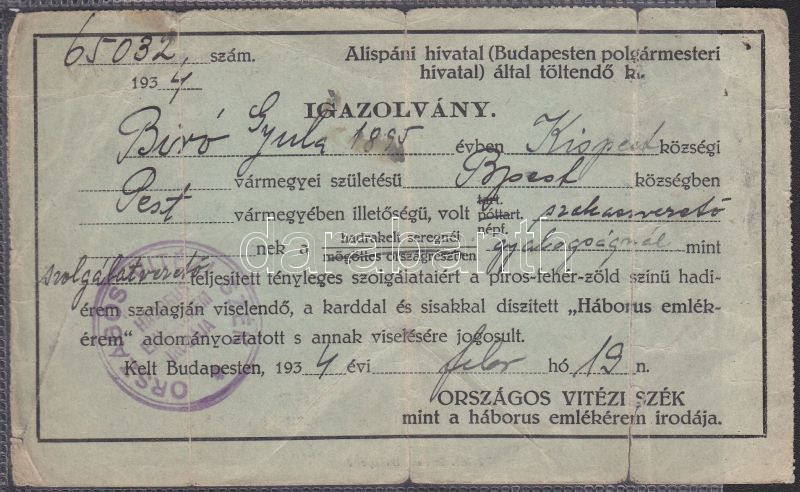 65032 szám. Alispáni hivatal (Budapesten polgármesteri
1934 hivatal) által töltendő ki.
IGAZOLVÁNY.
Biró Gyula 1895 évben Kispest községi
Pest vármegyei születésü Bpest községben
tart.
vármegyében illetőségü, volt póttart. szakaszvezető
népf.
hadrakelt seregnél
nek a mögöttes országrészben gyalogságnál mint
szolgálatvezető teljesitett tényleges szolgálataiért a piros-fehér-zöld szinű hadi-
érem szalagján viselendő, a karddal és sisakkal diszített „Háborus emlék-
érem“ adományoztatott s annak viselésére jogosult.
Kelt Budapesten, 1934 évi febr hó 19 n.
ORSZÁGOS VITÉZI SZÉK
mint a háborus emlékérem irodája.
ORSZÁGOS VITÉZI SZÉK
darabanth.com